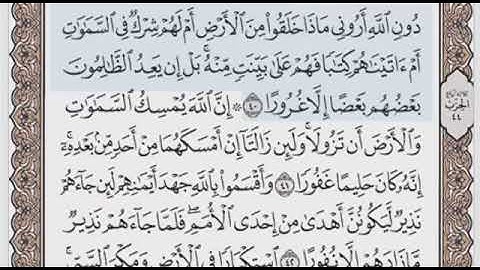 دُونِ ٱللَّهِ أَرُونِى مَاذَا خَلَقُوا۟ مِنَ ٱلْأَرْضِ أَمْ لَهُمْ شِرْكٌ فِى ٱلسَّمَٰوَٰتِ
أَمْ ءَاتَيْنَٰهُمْ كِتَٰبًا فَهُمْ عَلَىٰ بَيِّنَتٍ مِّنْهُ ۚ بَلْ إِن يَعِدُ ٱلظَّٰلِمُونَ
بَعْضُهُم بَعْضًا إِلَّا غُرُورًا ٤٠ ۞ إِنَّ ٱللَّهَ يُمْسِكُ ٱلسَّمَٰوَٰتِ
وَٱلْأَرْضَ أَن تَزُولَا ۚ وَلَئِن زَالَتَآ إِنْ أَمْسَكَهُمَا مِنْ أَحَدٍ مِّنۢ بَعْدِهِۦٓ ۚ
إِنَّهُۥ كَانَ حَلِيمًا غَفُورًا ٤١ وَأَقْسَمُوا۟ بِٱللَّهِ جَهْدَ أَيْمَٰنِهِمْ لَئِن جَآءَهُمْ
نَذِيرٌ لَّيَكُونُنَّ أَهْدَىٰ مِنْ إِحْدَى ٱلْأُمَمِ ۖ فَلَمَّا جَآءَهُمْ نَذِيرٌ
مَّا زَادَهُمْ إِلَّا نُفُورًا ٤٢ ٱسْتِكْبَارًا فِى ٱلْأَرْضِ وَمَكْرَ ٱلسَّيِّئِ ۚ
الحزب
٤٤